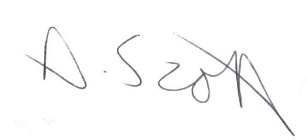 A. Scott